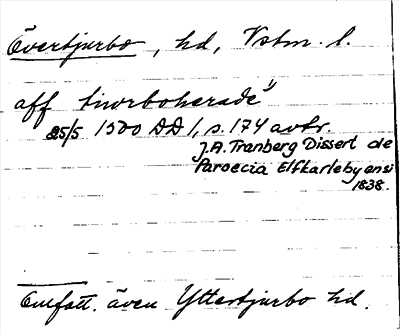 Övertjurbo, hd, Vstm. l.
aff tiwrboherade"
25/5 1500 DD 1, s. 174 avtr.
J.A. Tranberg Dissert de
Paroecia Elfkarlebyensi
1838.
Omfatt. även Yttertjurbo hd.